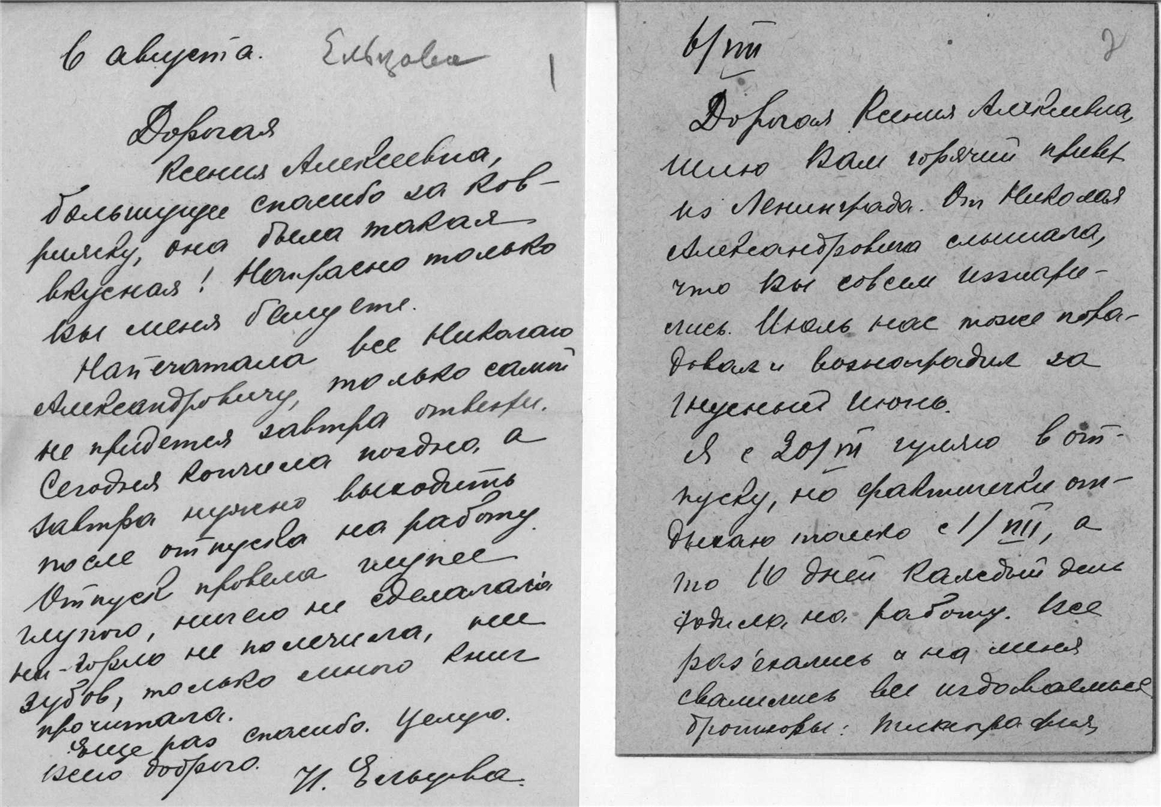 6 августа. Ельцова 1
Дорогая
Ксения Алексеевна,
большущее спасибо за ков-
рижку, она была такая
вкусная! Напрасно только
Вы меня балуете.
Напечатала все Николаю
Александровичу, только самой
не придется завтра отвезти.
Сегодня кончила поздно, а
завтра нужно выходить
после отпуска на работу.
Отпуск провела глупее
глупого, ничего не сделала:
ни горло не полечила, ни
зубов, только много книг
прочитала.
Еще раз спасибо. Целую.
Всего доброго.
Н. Ельцова.
6/VIII 2
Дорогая Ксения Алексеевна,
шлю Вам горячий привет
из Ленинграда. От Николая
Александровича слышала,
что Вы совсем изжари-
лись. Июль нас тоже пора-
довал и вознаградил за
гнусный июнь.
Я с 20/VII гуляю в от-
пуску, но фактически от-
дыхаю только с 1/VIII, а
то 10 дней каждый день
ходила на работу. Все
раз'ехались и на меня
свалились все издаваемые
брошюры: типография